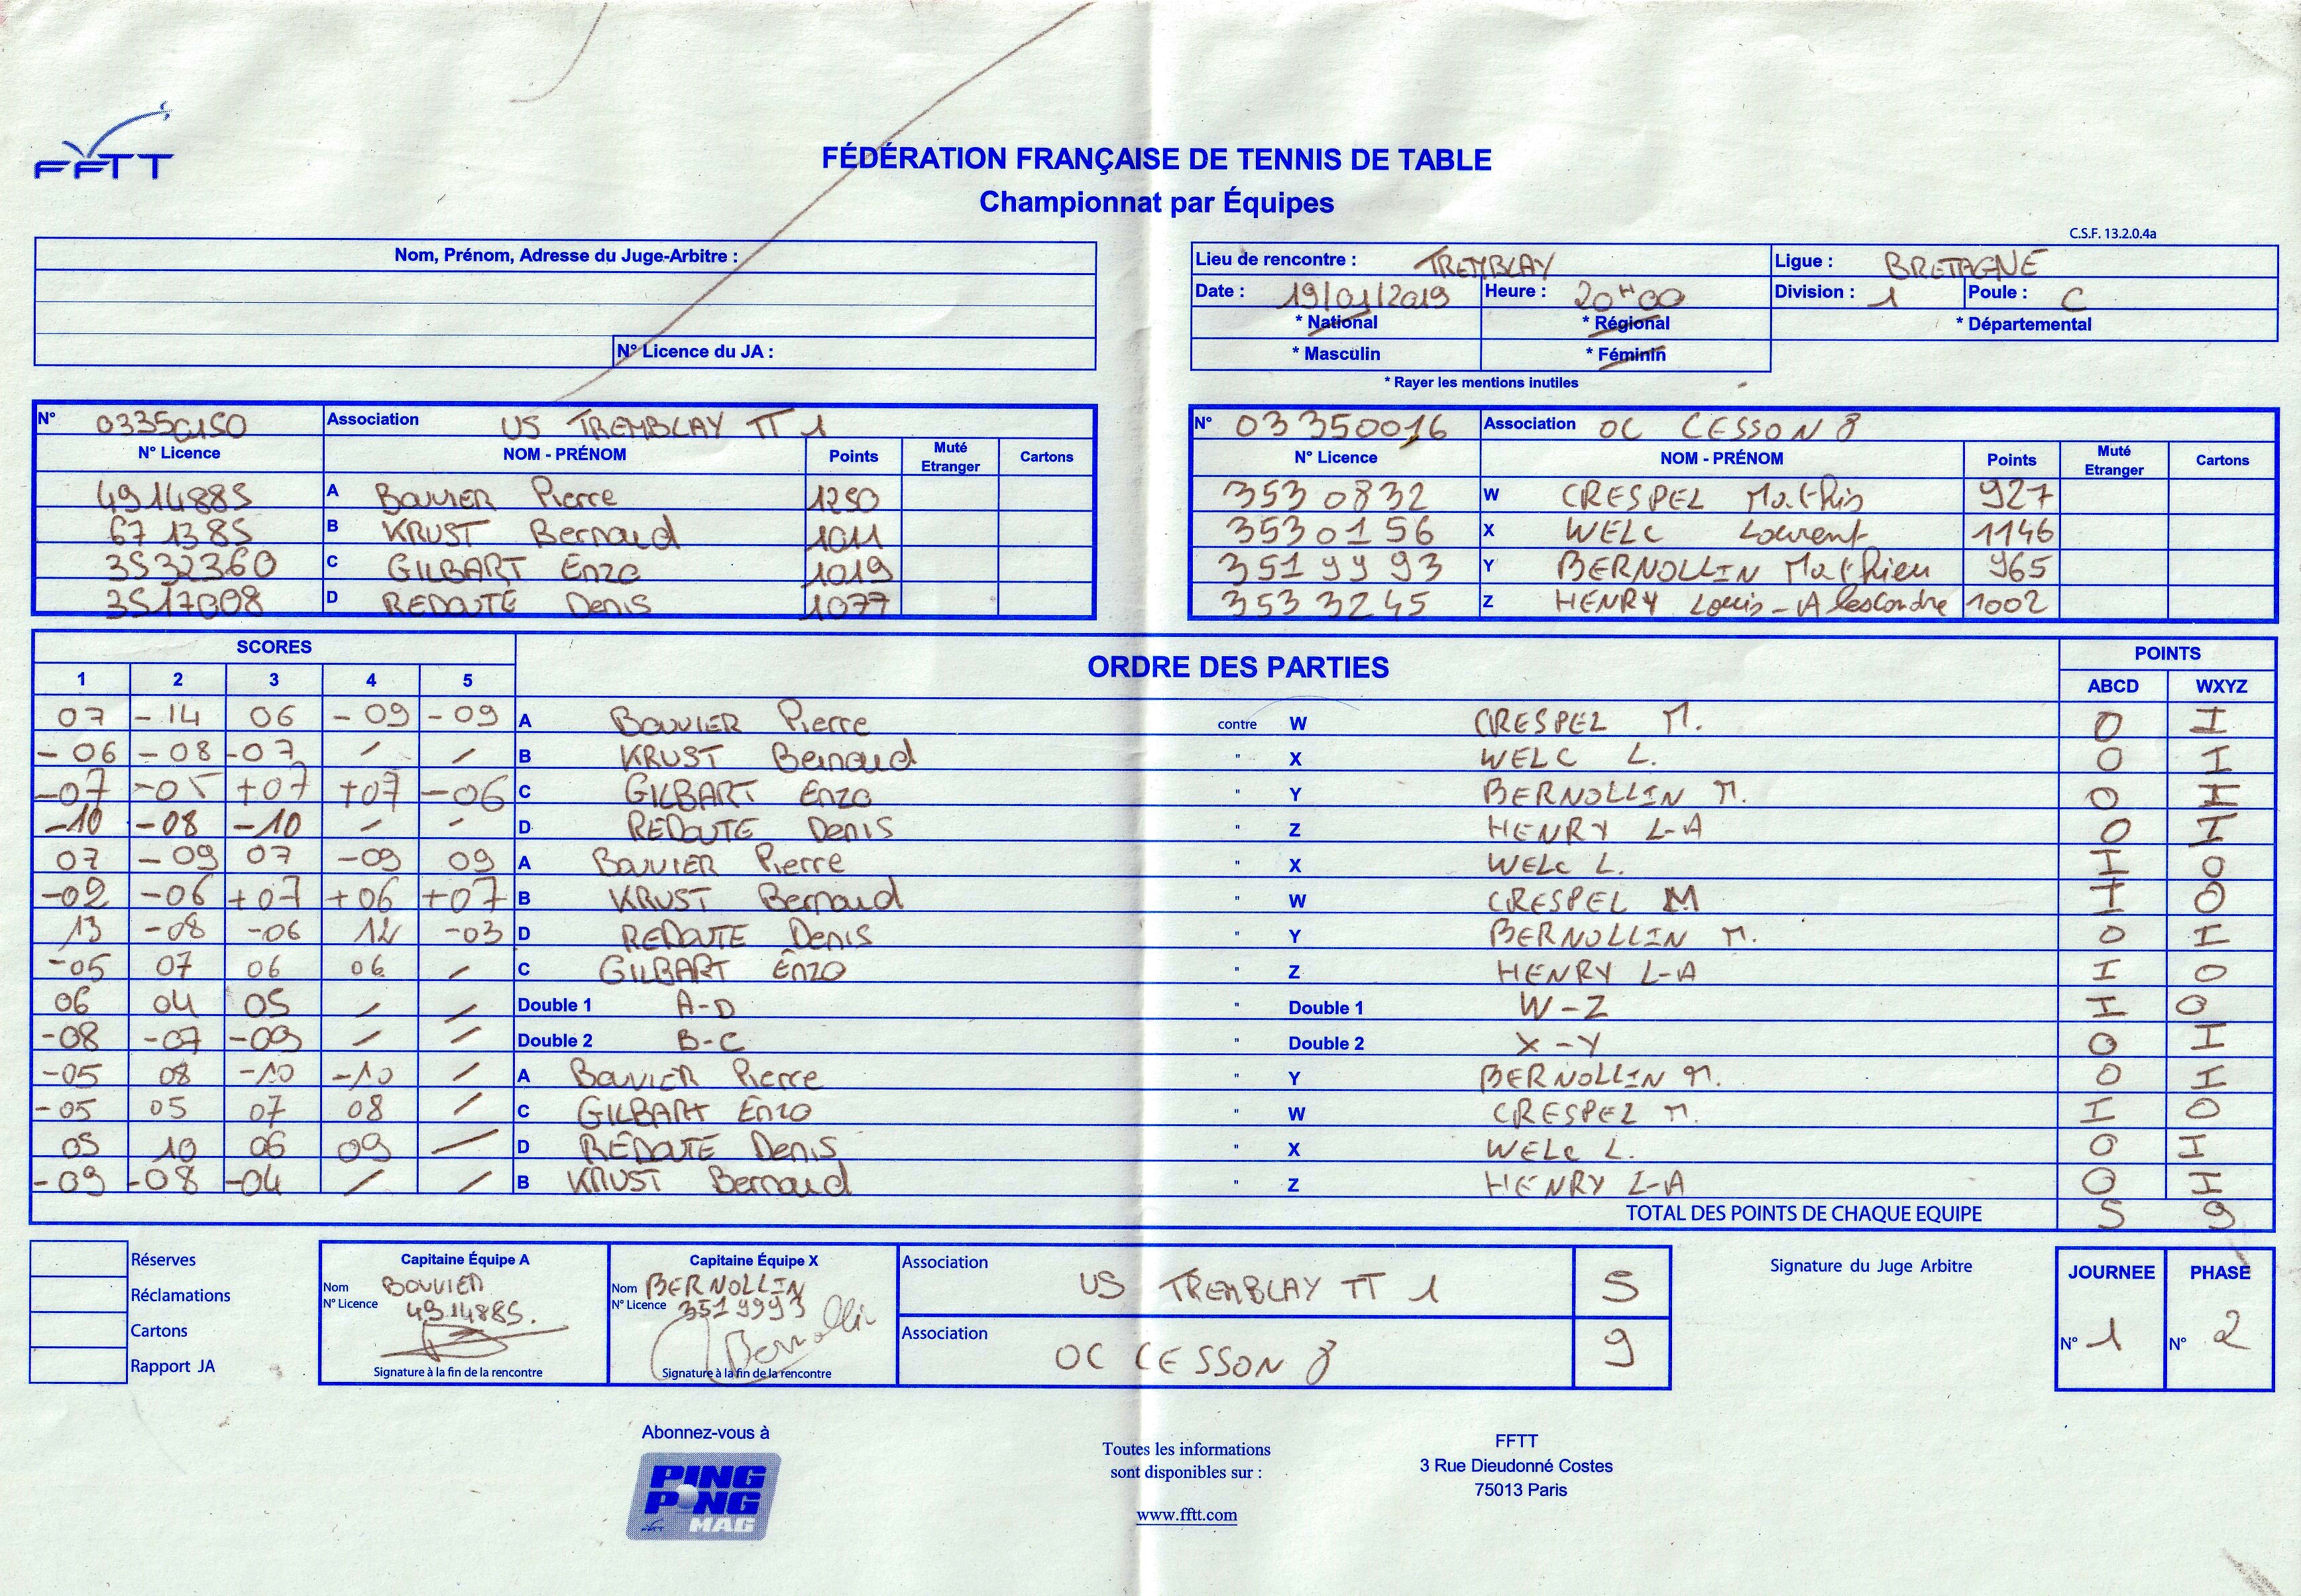 FFTT
FÉDÉRATION FRANÇAISE DE TENNIS DE TABLE
Championnat par Équipes
C.S.F. 13.2.0.4a
Nom, Prénom, Adresse du Juge-Arbitre :
N° Licence du JA :
Lieu de rencontre : TREMBLAY Ligue : BRETAGNE
Date : 19/01/2019 Heure : 20H00 Division : 1 Poule : C
* National * Régional * Départemental
* Masculin * Féminin
* Rayer les mentions inutiles
N° 03350150 Association US TREMBLAY TT 1
N° Licence NOM - PRÉNOM Points Muté Etranger Cartons
4914885 A BOUVIER Pierre 1250
671385 B KRUST Bernaud 1011
3532360 C GILBART Enzo 1019
3517008 D REDOUTÉ Denis 1077
N° 03350016 Association OC CESSON 8
N° Licence NOM - PRÉNOM Points Muté Etranger Cartons
3530832 W CRESPEL Mathis 927
3530156 X WELC Laurent 1146
3519993 Y BERNOLLIN Mathieu 965
3533245 Z HENRY Louis-Alescandre 1002
SCORES ORDRE DES PARTIES POINTS
1 2 3 4 5 ABCD WXYZ
07 -14 06 -09 -09 A BOUVIER Pierre contre W CRESPEL M. 0 I
-06 -08 -07 / / B KRUST Bernaud " X WELC L. 0 I
-07 -05 +07 +07 -06 C GILBART Enzo " Y BERNOLLIN M. 0 I
-10 -08 -10 / / D REDOUTE Denis " Z HENRY L-A 0 I
07 -09 07 -09 09 A BOUVIER Pierre " X WELC L. I 0
-02 -06 +07 +06 +07 B KRUST Bernaud " W CRESPEL M I 0
13 -08 -06 12 -03 D REDOUTE Denis " Y BERNOLLIN M. 0 I
-05 07 06 06 / C GILBART Enzo " Z HENRY L-A I 0
06 04 05 / / Double 1 A-D " Double 1 W-Z I 0
-08 -07 -09 / / Double 2 B-C " Double 2 X-Y 0 I
-05 08 -10 -10 / A BOUVIER Pierre " Y BERNOLLIN M. 0 I
-05 05 07 08 / C GILBART Enzo " W CRESPEL M. I 0
05 10 06 09 / D REDOUTE Denis " X WELC L. 0 I
-09 -08 -04 / / B KRUST Bernaud " Z HENRY L-A 0 I
TOTAL DES POINTS DE CHAQUE EQUIPE 5 9
Réserves
Réclamations
Cartons
Rapport JA
Capitaine Équipe A
Nom BOUVIER
N° Licence 4914885.
Signature à la fin de la rencontre
Capitaine Équipe X
Nom BERNOLLIN
N° Licence 3519993
Bernollin
Signature à la fin de la rencontre
Association US TREMBLAY TT 1 5
Association OC CESSON 8 9
Signature du Juge Arbitre
JOURNEE PHASE
N° 1 N° 2
Abonnez-vous à
PING
PONG
MAG
Toutes les informations
sont disponibles sur :
www.fftt.com
FFTT
3 Rue Dieudonné Costes
75013 Paris